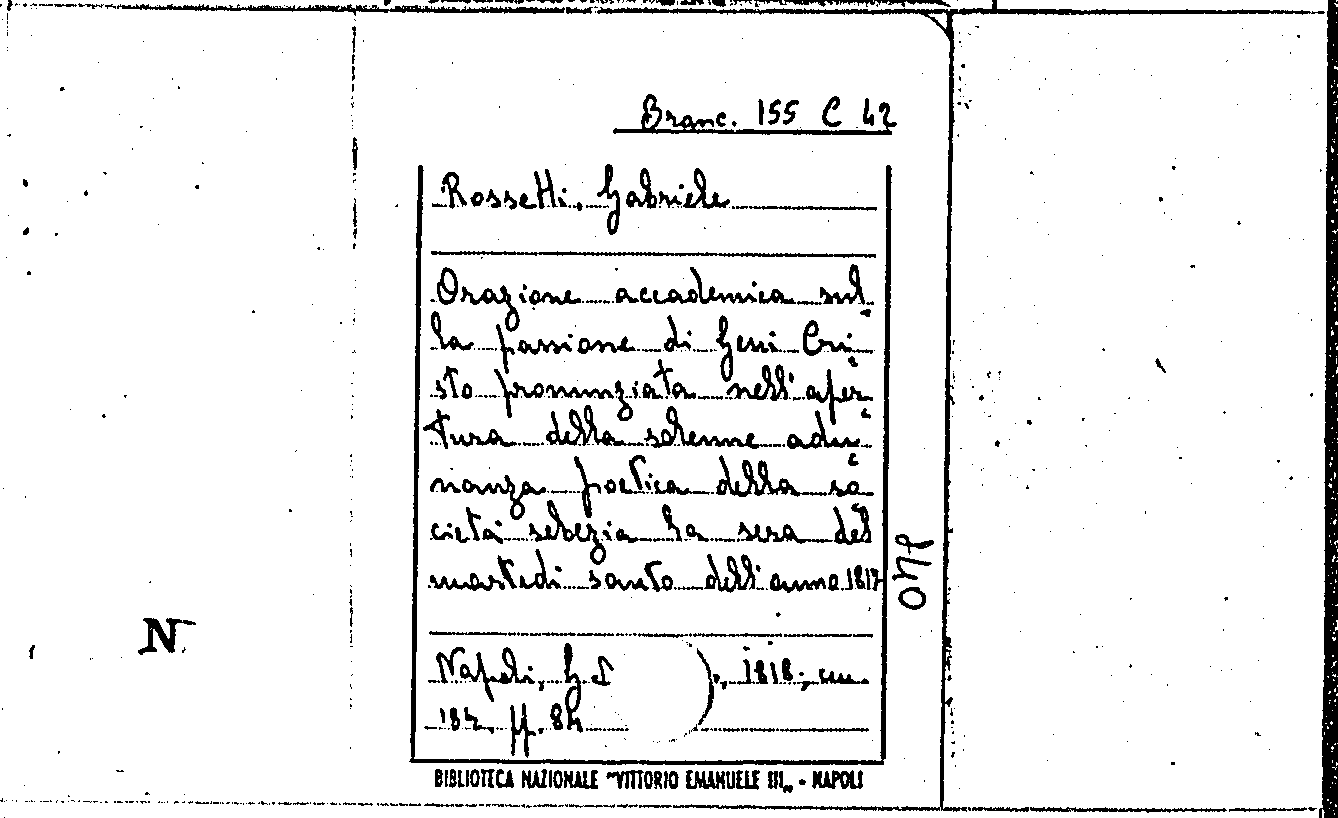 Branc. 155 C 42
Rossetti, Gabriele
Orazione accademica sul
la passione di Gesù Cri
sto pronunziata nell'aper
tura della solenne adu
nanza poetica della so
cietà sebezia la sera del
martedì santo dell'anno 1817
Napoli, G
, 1818, cm
pp. 84
BIBLIOTECA NAZIONALE "VITTORIO EMANUELE III„ - NAPOLI
N